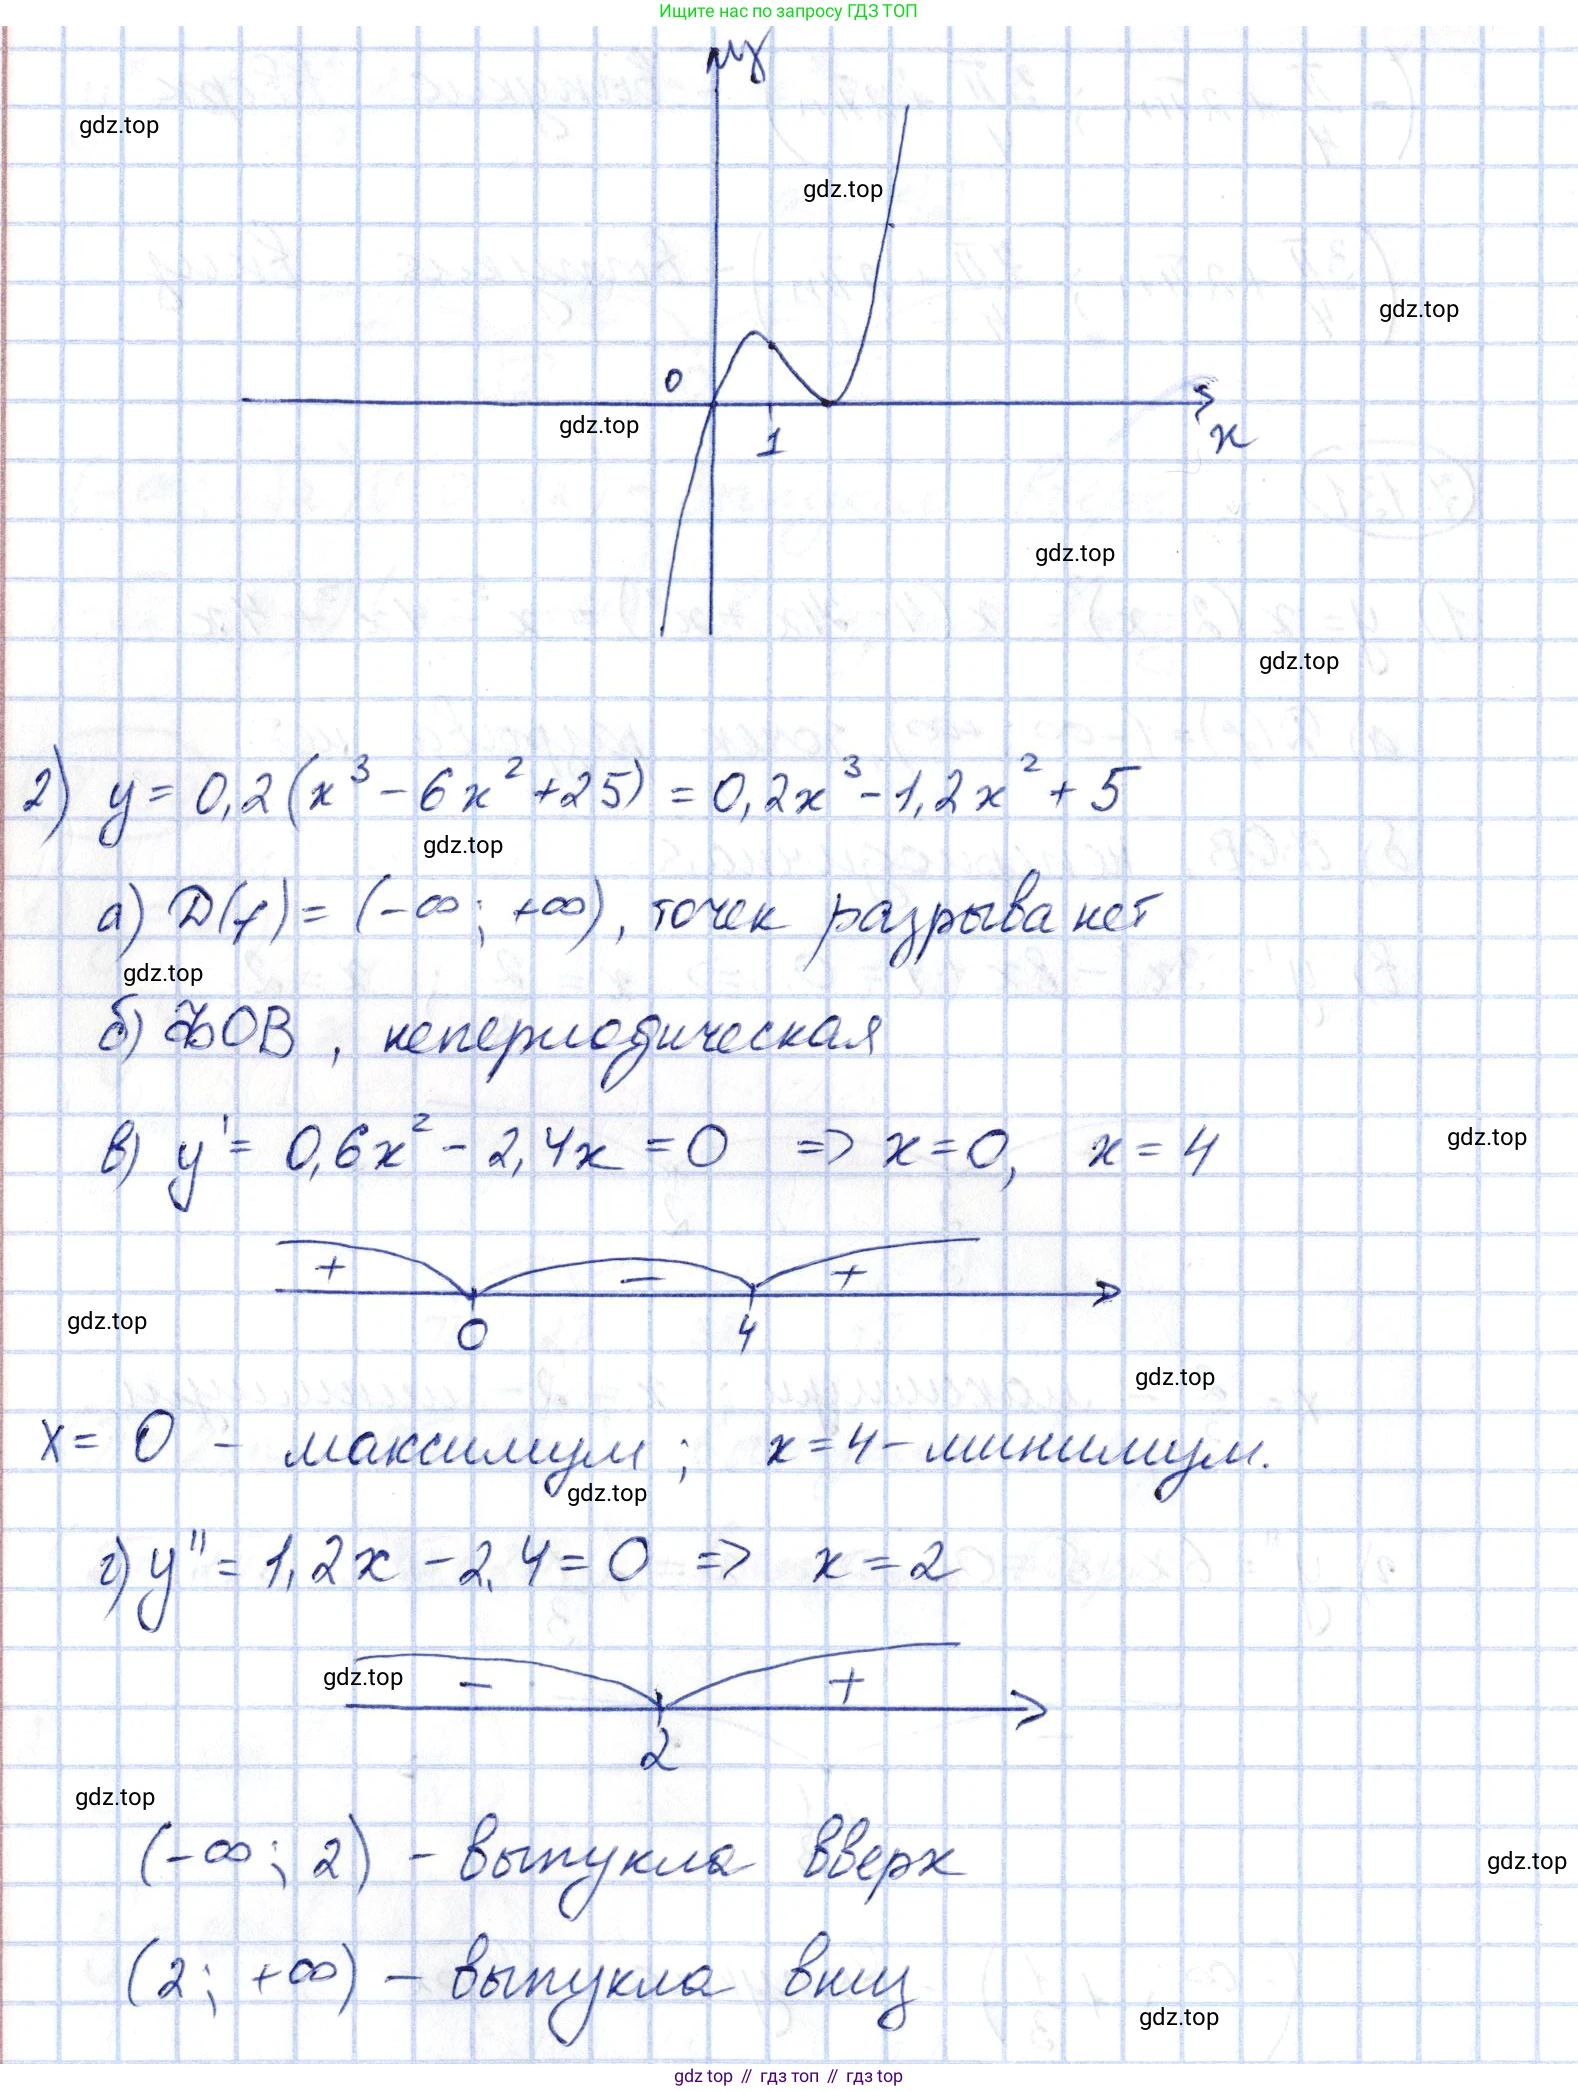 Ищите нас по запросу ГДЗ ТОП
y
gdz.top
gdz.top
gdz.top
0
gdz.top
1
x
gdz.top
gdz.top
2) y = 0,2(x³ - 6x² + 25) = 0,2x³ - 1,2x² + 5
gdz.top
а) D(y) = (-∞; +∞), точек разрыва нет
gdz.top
б) ФОВ, непериодическая
в) y' = 0,6x² - 2,4x = 0 => x = 0, x = 4
gdz.top
+ - +
gdz.top
0 4
gdz.top
x = 0 - максимум; x = 4 - минимум.
gdz.top
г) y'' = 1,2x - 2,4 = 0 => x = 2
gdz.top
- +
2
gdz.top
(-∞; 2) - выпукла вверх
gdz.top
(2; +∞) - выпукла вниз
gdz.top
gdz top // гдз топ // гдз top